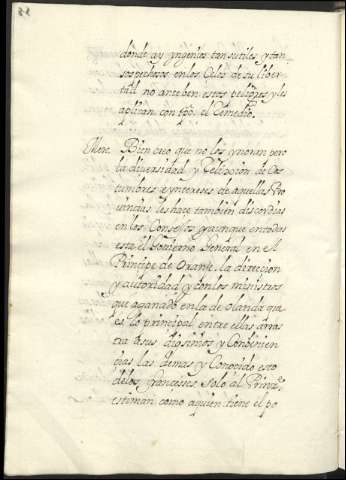 donde ay yngenios tan sutiles y tan
sospechosos en los Celos de su liber-
tad no anteben estos peligros y les
aplican con tpô. el Remedio.
Merc. Bien creo que no los ynoran pero
la diuersidad y Relixion de Cos
tumbres e yntereses de aquellas Pro
uincias les hace tambien discordes
en los Consejos y aunque en todas
esta el Gouierno General en el
Principe de Oranxe la direcion
y autoridad y con los ministros
que a ganado en la de olanda que
es la principal entre ellas arras
tra a sus disinios y Combinien
cias las demas y Conocido esto
de los franceses Solo al Principe
estiman como a quien tiene el po